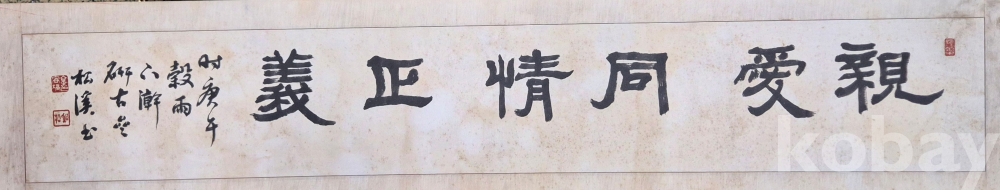 親愛同情正義
時庚午
穀雨
下澣
硏古
松溪書
kobay